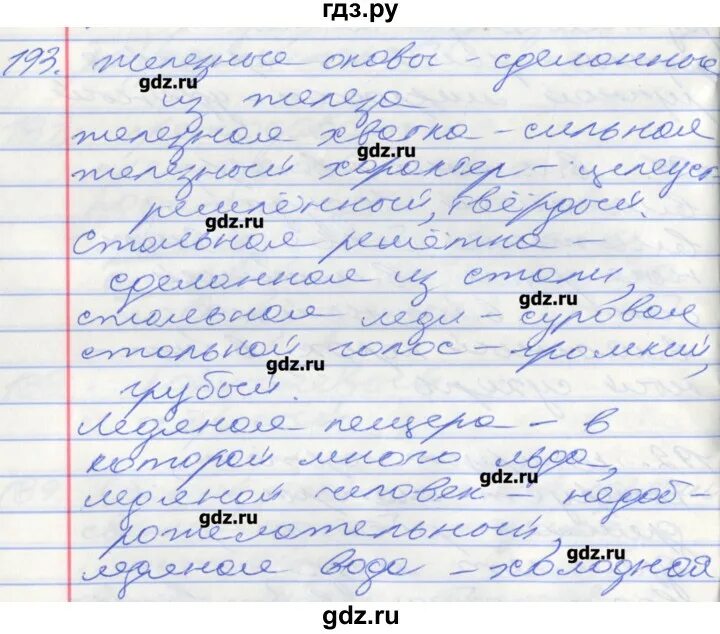 гдз.ру
193. железные оковы - сделанные
gdz.ru
из железа
железная хватка - сильная
gdz.ru
железный характер - целеуст
ремлённый, твёрдый.
gdz.ru
Стальная решётка -
сделанная из стали,
gdz.ru
стальная леди - суровая
стальной голос - громкий,
gdz.ru
грубый.
Ледяная пещера - в
которой много льда,
gdz.ru
ледяной человек - недоб-
gdz.ru
рожелательный,
gdz.ru
ледяная вода - холодная
gdz.ru